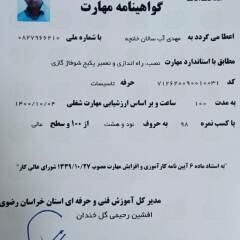 گواهینامه مهارت
اعطا می گردد به مهدی آب سالان خلچه با شماره ملی ۰۸۲۷۹۶۶۲۱۰
مطابق با استاندارد مهارت نصب، راه اندازی و تعمیر پکیج شوفاژ گازی
کد ۷۱۲۶۲۰۰۹۰۰۱۰۰۳۱ حرفه تاسیسات
به مدت ۱۰۰ ساعت و بر اساس ارزشیابی مهارت شغلی ۱۴۰۰/۱۰/۰۴
با کسب نمره ۹۸ به حروف نود و هشت از ۱۰۰ و سطح عالی
"به استناد ماده ۶ آیین نامه کارآموزی و افزایش مهارت مصوب ۱۳۳۹/۱۰/۲۷ شورای عالی کار"
مدیر کل آموزش فنی و حرفه ای استان خراسان رضوی
افشین رحیمی گل خندان